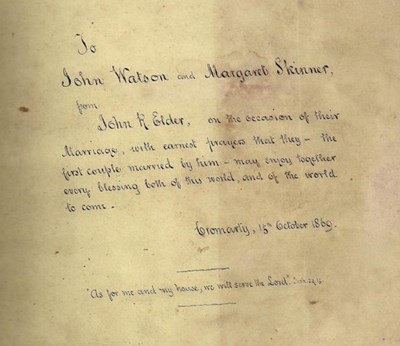 To
John Watson and Margaret Skinner,
from
John R Elder, on the occasion of their
Marriage, with earnest prayers that they – the
first couple married by him – may enjoy together
every blessing both of this world, and of the world
to come.
Cromarty, 15th October 1869.
"As for me and my house, we will serve the Lord." Josh. 24.15